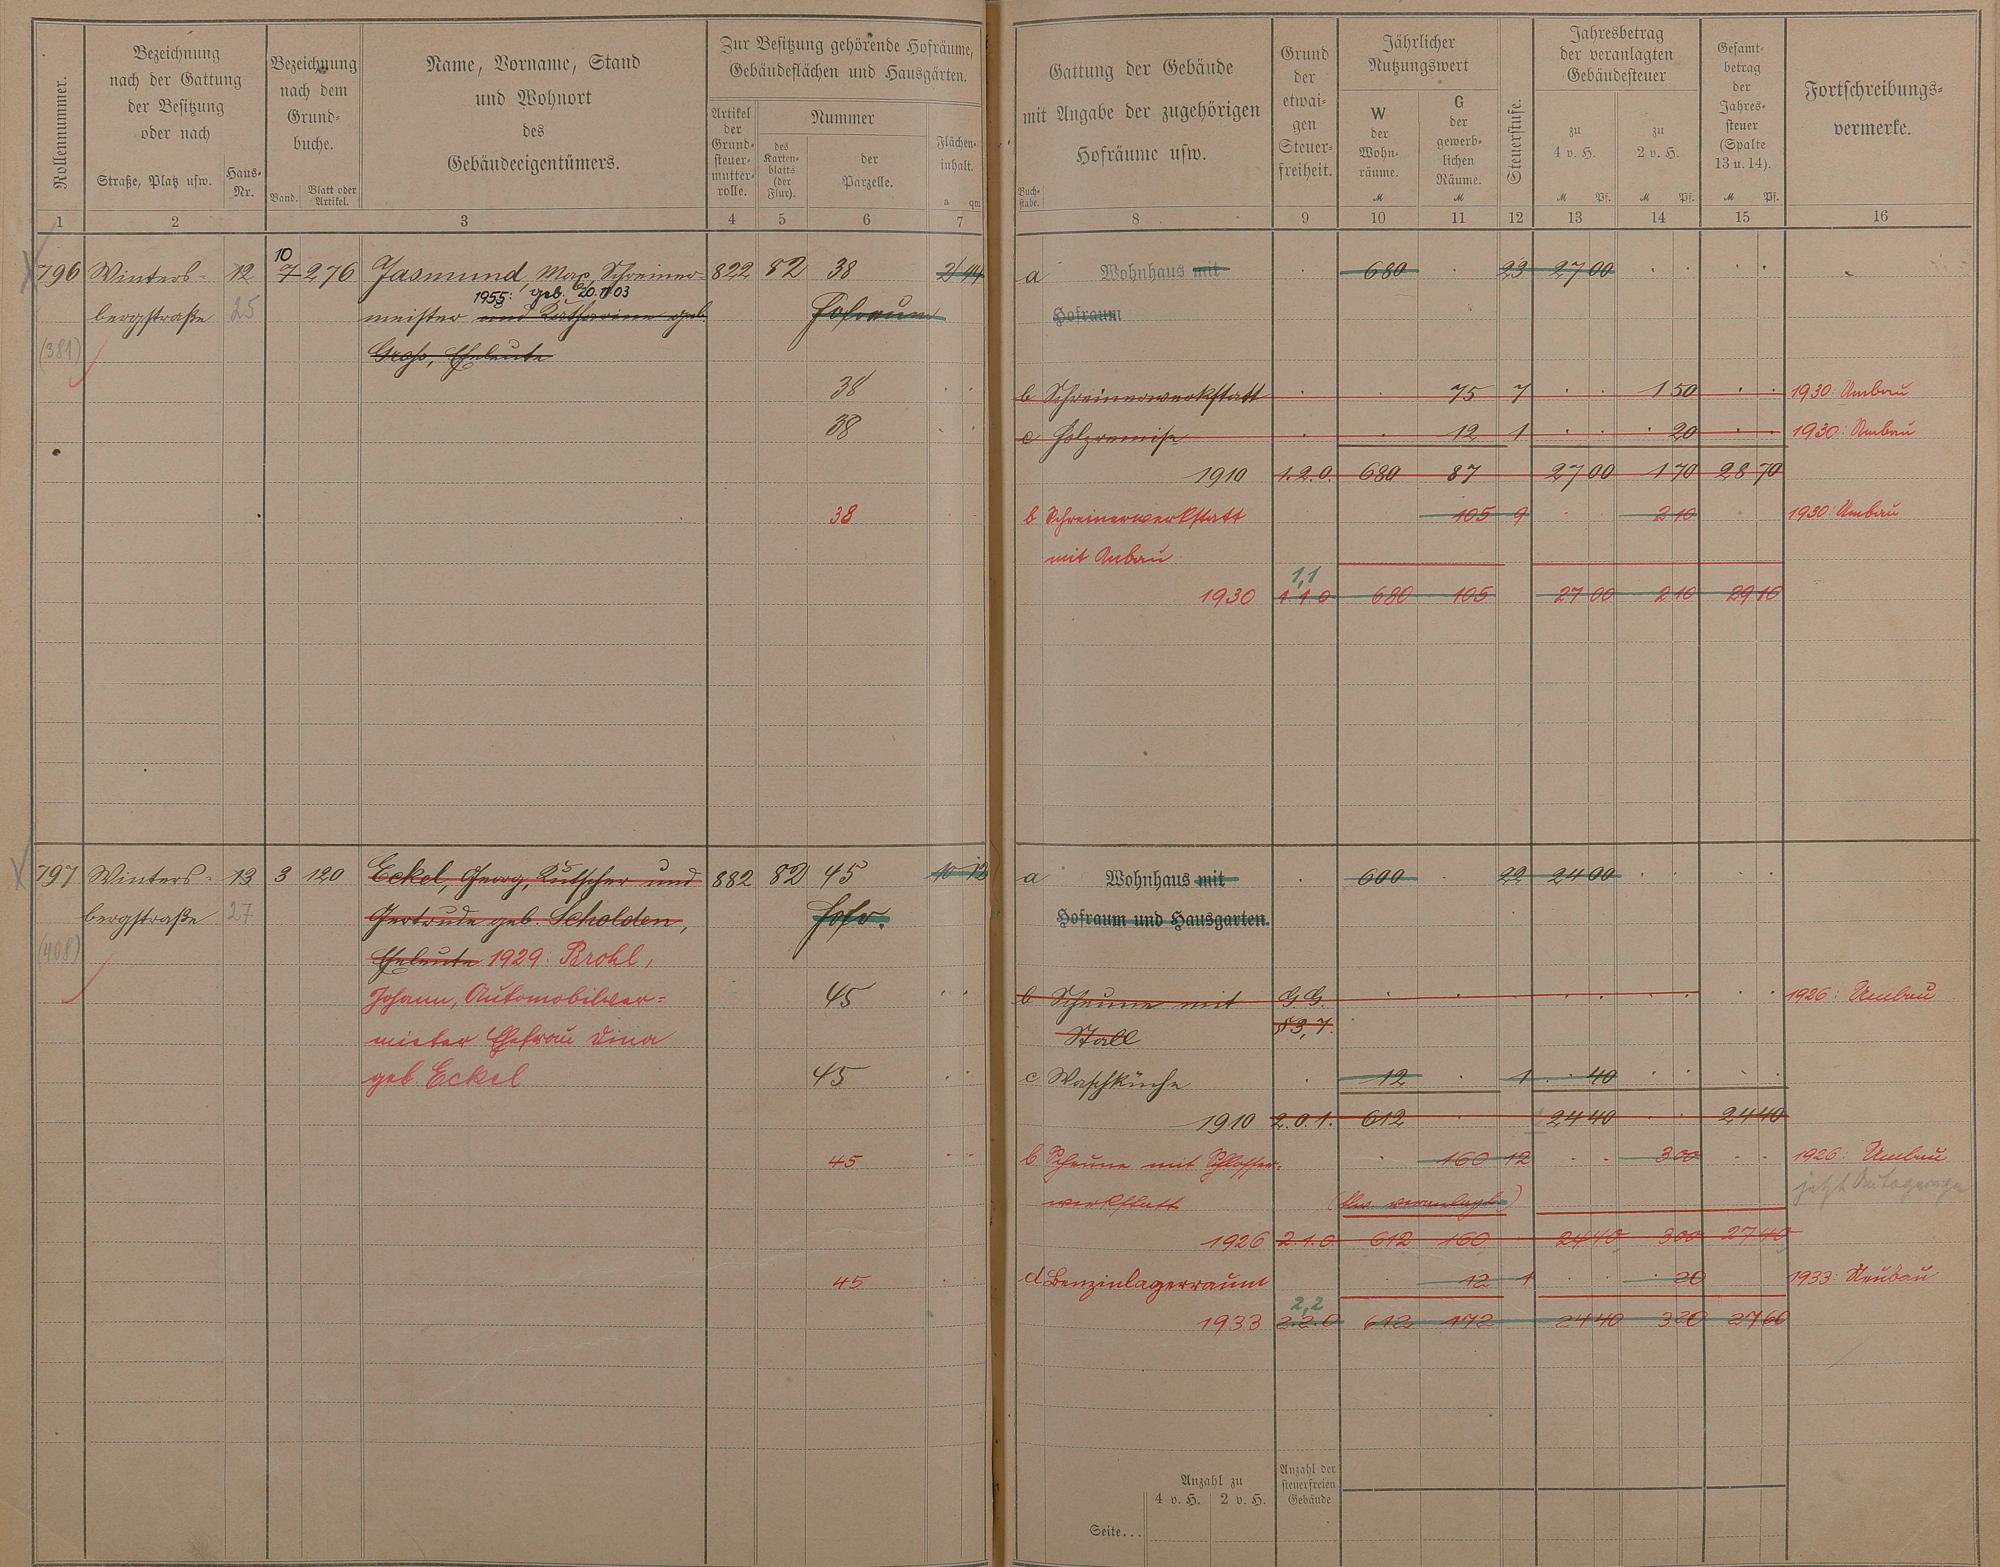 Rollennummer.
Bezeichnung
nach der Gattung
der Besitzung
oder nach
Straße, Platz usw.
Haus-
Nr.
Bezeichnung
nach dem
Grund-
buche.
Band.
Blatt oder
Artikel.
Name, Vorname, Stand
und Wohnort
des
Gebäudeeigentümers.
Zur Besitzung gehörende Hofräume,
Gebäudeflächen und Hausgärten.
Artikel
der
Grund-
steuer-
mutter-
rolle.
Nummer
des
Karten-
blatts
(der
Flur).
der
Parzelle.
Flächen-
inhalt.
a qm
Gattung der Gebäude
mit Angabe der zugehörigen
Hofräume usw.
Buch-
stabe.
Grund
der
etwai-
gen
Steuer-
freiheit.
Jährlicher
Nutzungswert
W
der
Wohn-
räume.
M
G
der
gewerb-
lichen
Räume.
M
Steuerstufe.
Jahresbetrag
der veranlagten
Gebäudesteuer
zu
4 v. H.
M Pf.
zu
2 v. H.
M Pf.
Gesamt-
betrag
der
Jahres-
steuer
(Spalte
13 u. 14).
M Pf.
Fortschreibungs-
vermerke.
1 2 3 4 5 6 7 8 9 10 11 12 13 14 15 16
10
796 Winters- 12 7 276 Jasmund, Max, Schreiner- 822 82 38 2 44 a Wohnhaus mit 680 23 27 00
1955: geb. 20.11.03
bergstraße 25 meister und Katharina geb. Hofraum Hofraum
(381) Groß, Eheleute
38 b Schreinerwerkstatt 75 7 1 50 1930: Umbau
38 c Holzremise 12 1 20 1930: Umbau
1910 1.2.0. 680 87 27 00 1 70 28 70
38 b Schreinerwerkstatt 105 9 2 10 1930: Umbau
mit Anbau
1,1
1930 1.1.0 680 105 27 00 2 10 29 10
797 Winters- 13 3 120 Eckel, Georg, Kutscher und 882 82 45 10 12 a Wohnhaus mit 600 22 24 00
bergstraße 27 Gertrude geb. Scholden, Hofr. Hofraum und Hausgarten.
(408) Eheleute 1929: Brohl,
Johann, Automobilver- 45 b Scheune mit G.G. 1926: Umbau
mieter Ehefrau Dina Stall § 3,7.
geb. Eckel 45 c Waschküche 12 1 40
1910 2.0.1. 612 24 40 24 40
45 b Scheune mit Schlosser- 160 12 3 00 1926: Umbau
werkstatt veranlagt) jetzt Autogarage
1926 2.1.0 612 160 24 40 3 00 27 40
45 d Benzinlagerraum 12 1 20 1933: Neubau
2,2
1933 2.2.0 612 172 24 40 3 20 27 60
Anzahl zu
4 v. H. 2 v. H.
Anzahl der
steuerfreien
Gebäude
Seite...